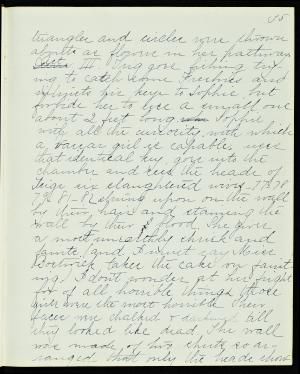 85
triangles and circles were shown
as flowers in her pathway
III. goes fishing try-
ing to catch some Freshies and
his keys to Sophie, but
forbids her to use a small one
about 2 feet long. Sophie
with all the curiosity with which
a girl is capable, used
that identical key, goes into the
chamber and sees the heads of
five or six slaughtered wives - 77 78
79 81 - 82 strung upon on the wall
by their hair and staining the
wall by their blood. She gives
a most unearthly shriek and
faints, and I must say Miss
takes the cake on faint-
ing. I don't wonder at her fright
for of all horrible things those
girls were the most horrible. Their
faces were chalked & darkened till
they looked like dead. The wall
was made of two sheets so ar-
ranged that only the heads show